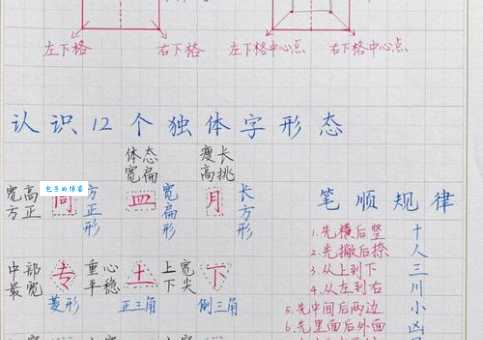 左下格 右下格 左下格中心点 右下格中心点
认识12个独体字形态
体态宽扁 瘦长高挑
宽高方正 同 方正形 皿 宽扁形 月 长方形
笔顺规律
1.先横后竖 十
2.先撇后捺 人
3.从上到下 三
4.从左到右 川
5.先中间后两边 小
6.先里面后外面 凶
中部最宽 专 重心平稳 土 上宽下尖 下
菱形 正三角 倒三角